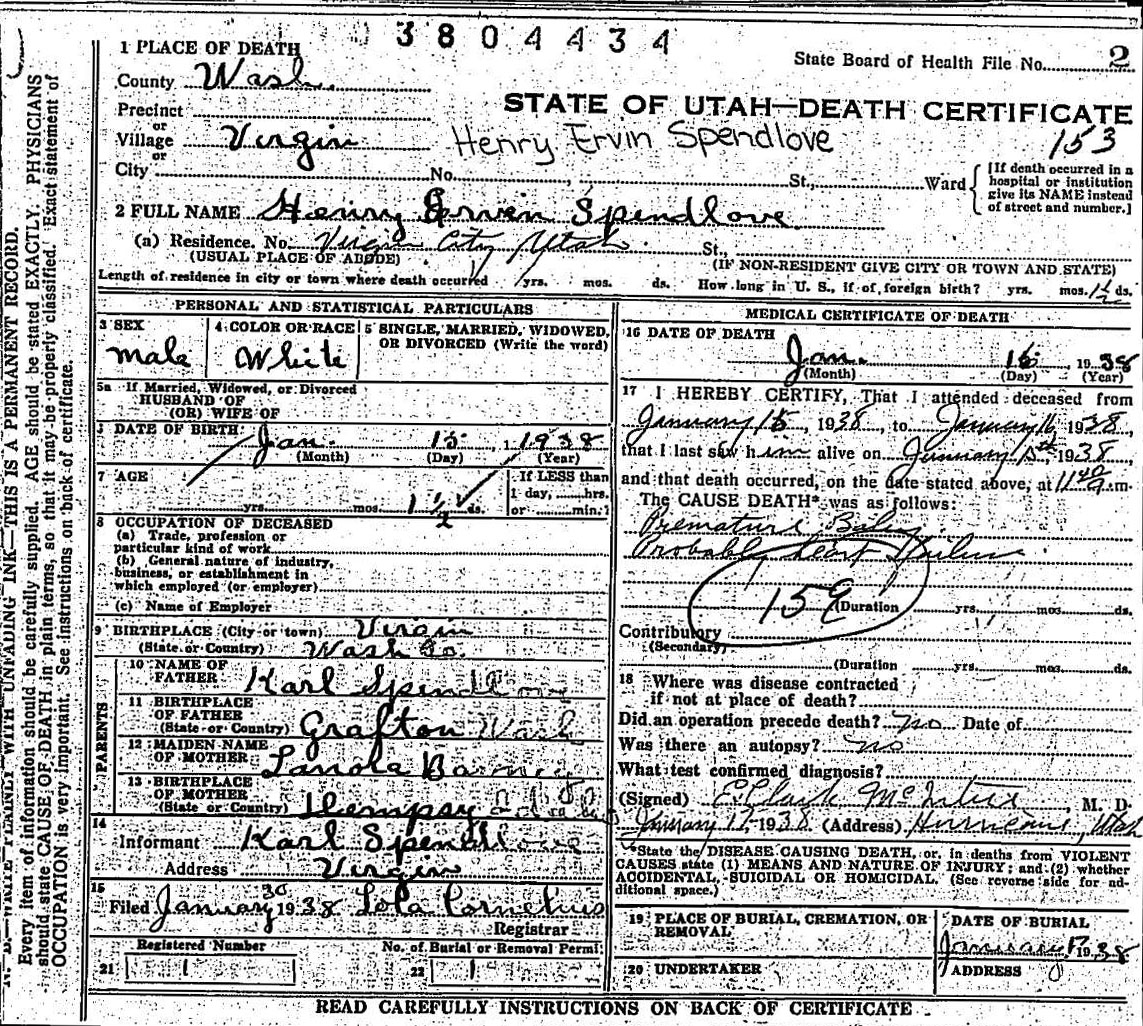 3804434
1 PLACE OF DEATH
State Board of Health File No. 2
County Wash.
STATE OF UTAH—DEATH CERTIFICATE
Precinct
or
Village Virgin
Henry Ervin Spendlove
153
or
City No. St., Ward
[If death occurred in a
hospital or institution
give its NAME instead
of street and number.]
2 FULL NAME Henry Erven Spendlove
(a) Residence. No. Virgin City, Utah St.,
(USUAL PLACE OF ABODE) (IF NON-RESIDENT GIVE CITY OR TOWN AND STATE)
Length of residence in city or town where death occurred yrs. mos. ds. How long in U. S., if of foreign birth? yrs. mos. 1½ ds.
PERSONAL AND STATISTICAL PARTICULARS
3 SEX
male
4 COLOR OR RACE
White
5 SINGLE, MARRIED, WIDOWED,
OR DIVORCED (Write the word)
5a If Married, Widowed, or Divorced
HUSBAND OF
(OR) WIFE OF
DATE OF BIRTH Jan. 15 1938
(Month) (Day) (Year)
7 AGE
If LESS than
1 day, hrs.
yrs. mos. 1½ ds. or min.?
8 OCCUPATION OF DECEASED
(a) Trade, profession or
particular kind of work
(b) General nature of industry,
business, or establishment in
which employed (or employer)
(c) Name of Employer
9 BIRTHPLACE (City or town) Virgin
(State or Country) Wash Co.
PARENTS
10 NAME OF
FATHER Karl Spendlove
11 BIRTHPLACE
OF FATHER
(State or Country) Grafton Wash
12 MAIDEN NAME
OF MOTHER Lanola Barney
13 BIRTHPLACE
OF MOTHER
(State or Country) Dempsy
14
Informant Karl Spendlove
Address Virgin
15
Filed January 30 1938 Lola Cornelius
Registrar
Registered Number
21 1
No. of Burial or Removal Permi
22 1
MEDICAL CERTIFICATE OF DEATH
16 DATE OF DEATH
Jan. 16 1938
(Month) (Day) (Year)
17 I HEREBY CERTIFY, That I attended deceased from
January 15, 1938, to January 16 1938,
that I last saw him alive on January 15th, 1938,
and that death occurred, on the date stated above, at 11 40 a m.
The CAUSE DEATH* was as follows:
Premature Baby
Probable heart failure
159 (Duration yrs. mos. ds.
Contributory
(Secondary)
(Duration yrs. mos. ds.
18 Where was disease contracted
if not at place of death?
Did an operation precede death? no Date of
Was there an autopsy? no
What test confirmed diagnosis?
(Signed) E Clark McIntire, M. D.
January 17, 1938 (Address) Hurricane, Utah
*State the DISEASE CAUSING DEATH, or, in deaths from VIOLENT
CAUSES state (1) MEANS AND NATURE OF INJURY; and (2) whether
ACCIDENTAL, SUICIDAL OR HOMICIDAL. (See reverse side for ad-
ditional space.)
19 PLACE OF BURIAL, CREMATION, OR
REMOVAL
DATE OF BURIAL
January 17 1938
20 UNDERTAKER
ADDRESS
READ CAREFULLY INSTRUCTIONS ON BACK OF CERTIFICATE
N. B.—WRITE PLAINLY WITH UNFADING INK—THIS IS A PERMANENT RECORD.
Every item of information should be carefully supplied. AGE should be stated EXACTLY. PHYSICIANS
should state CAUSE OF DEATH in plain terms, so that it may be properly classified. Exact statement of
OCCUPATION is very important. See instructions on back of certificate.